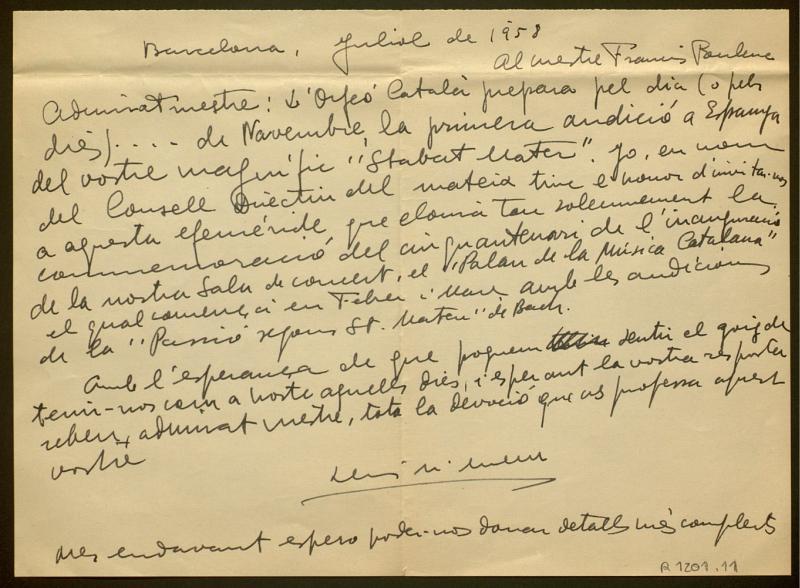 Barcelona, Juliol de 1958
Al mestre Francis Poulenc
Admirat mestre: L'Orfeó Català prepara pel dia (o pels
dies) .... de Novembre la primera audició a Espanya
del vostre magnífic "Stabat Mater". Jo, en nom
del Consell Directiu del mateix tinc l'honor d'invitar-vos
a aquesta efemèride que clourà tan solemnement la
commemoració del cinquantenari de l'inauguració
de la nostra Sala de concert, el "Palau de la Música Catalana"
el qual començà en Febrer i Març amb les audicions
de la "Passió segons St. Mateu" de Bach.
Amb l'esperança de que poguem sentir el goig de
tenir-vos com a hoste aquells dies, i esperant la vostra resposta
rebeu, admirat mestre, tota la devoció que us professa aquest
vostre
Lluís Mª Millet
Més endavant espero poder-vos donar detalls més complerts
R 1201.11